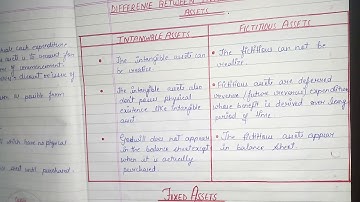 DIFFERENCE BETWEEN
ASSETS
INTANGIBLE ASSETS
FICTITIOUS ASSETS
The intangible assets can be realise
The fictitious can not be realise
The intangible assets also don't posses physical existence like intangible asset
Fictitious assets are deferred revenue (future revenue) expenditure whose benefit is derived over long period of time
Goodwill does not appears in the balance sheet except when it is actually purchased
The fictitious assets appear in balance sheet.
FIXED ASSETS
cash expenditure
to amount from
of commencement
discount on issue of
possible from
which have no physical
and not purchased